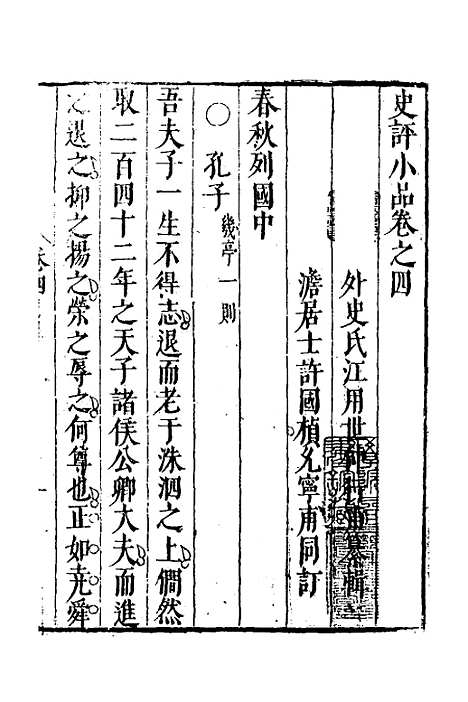 史評小品卷之四
外史氏江用世
輯
澹居士許國楨允寧甫同訂
春秋列國中
○孔子 幾亭一則
吾夫子一生不得志退而老于洙泗之上僩然
取二百四十二年之天子諸侯公卿大夫而進
之退之抑之揚之榮之辱之何尊也正如堯舜
卷四